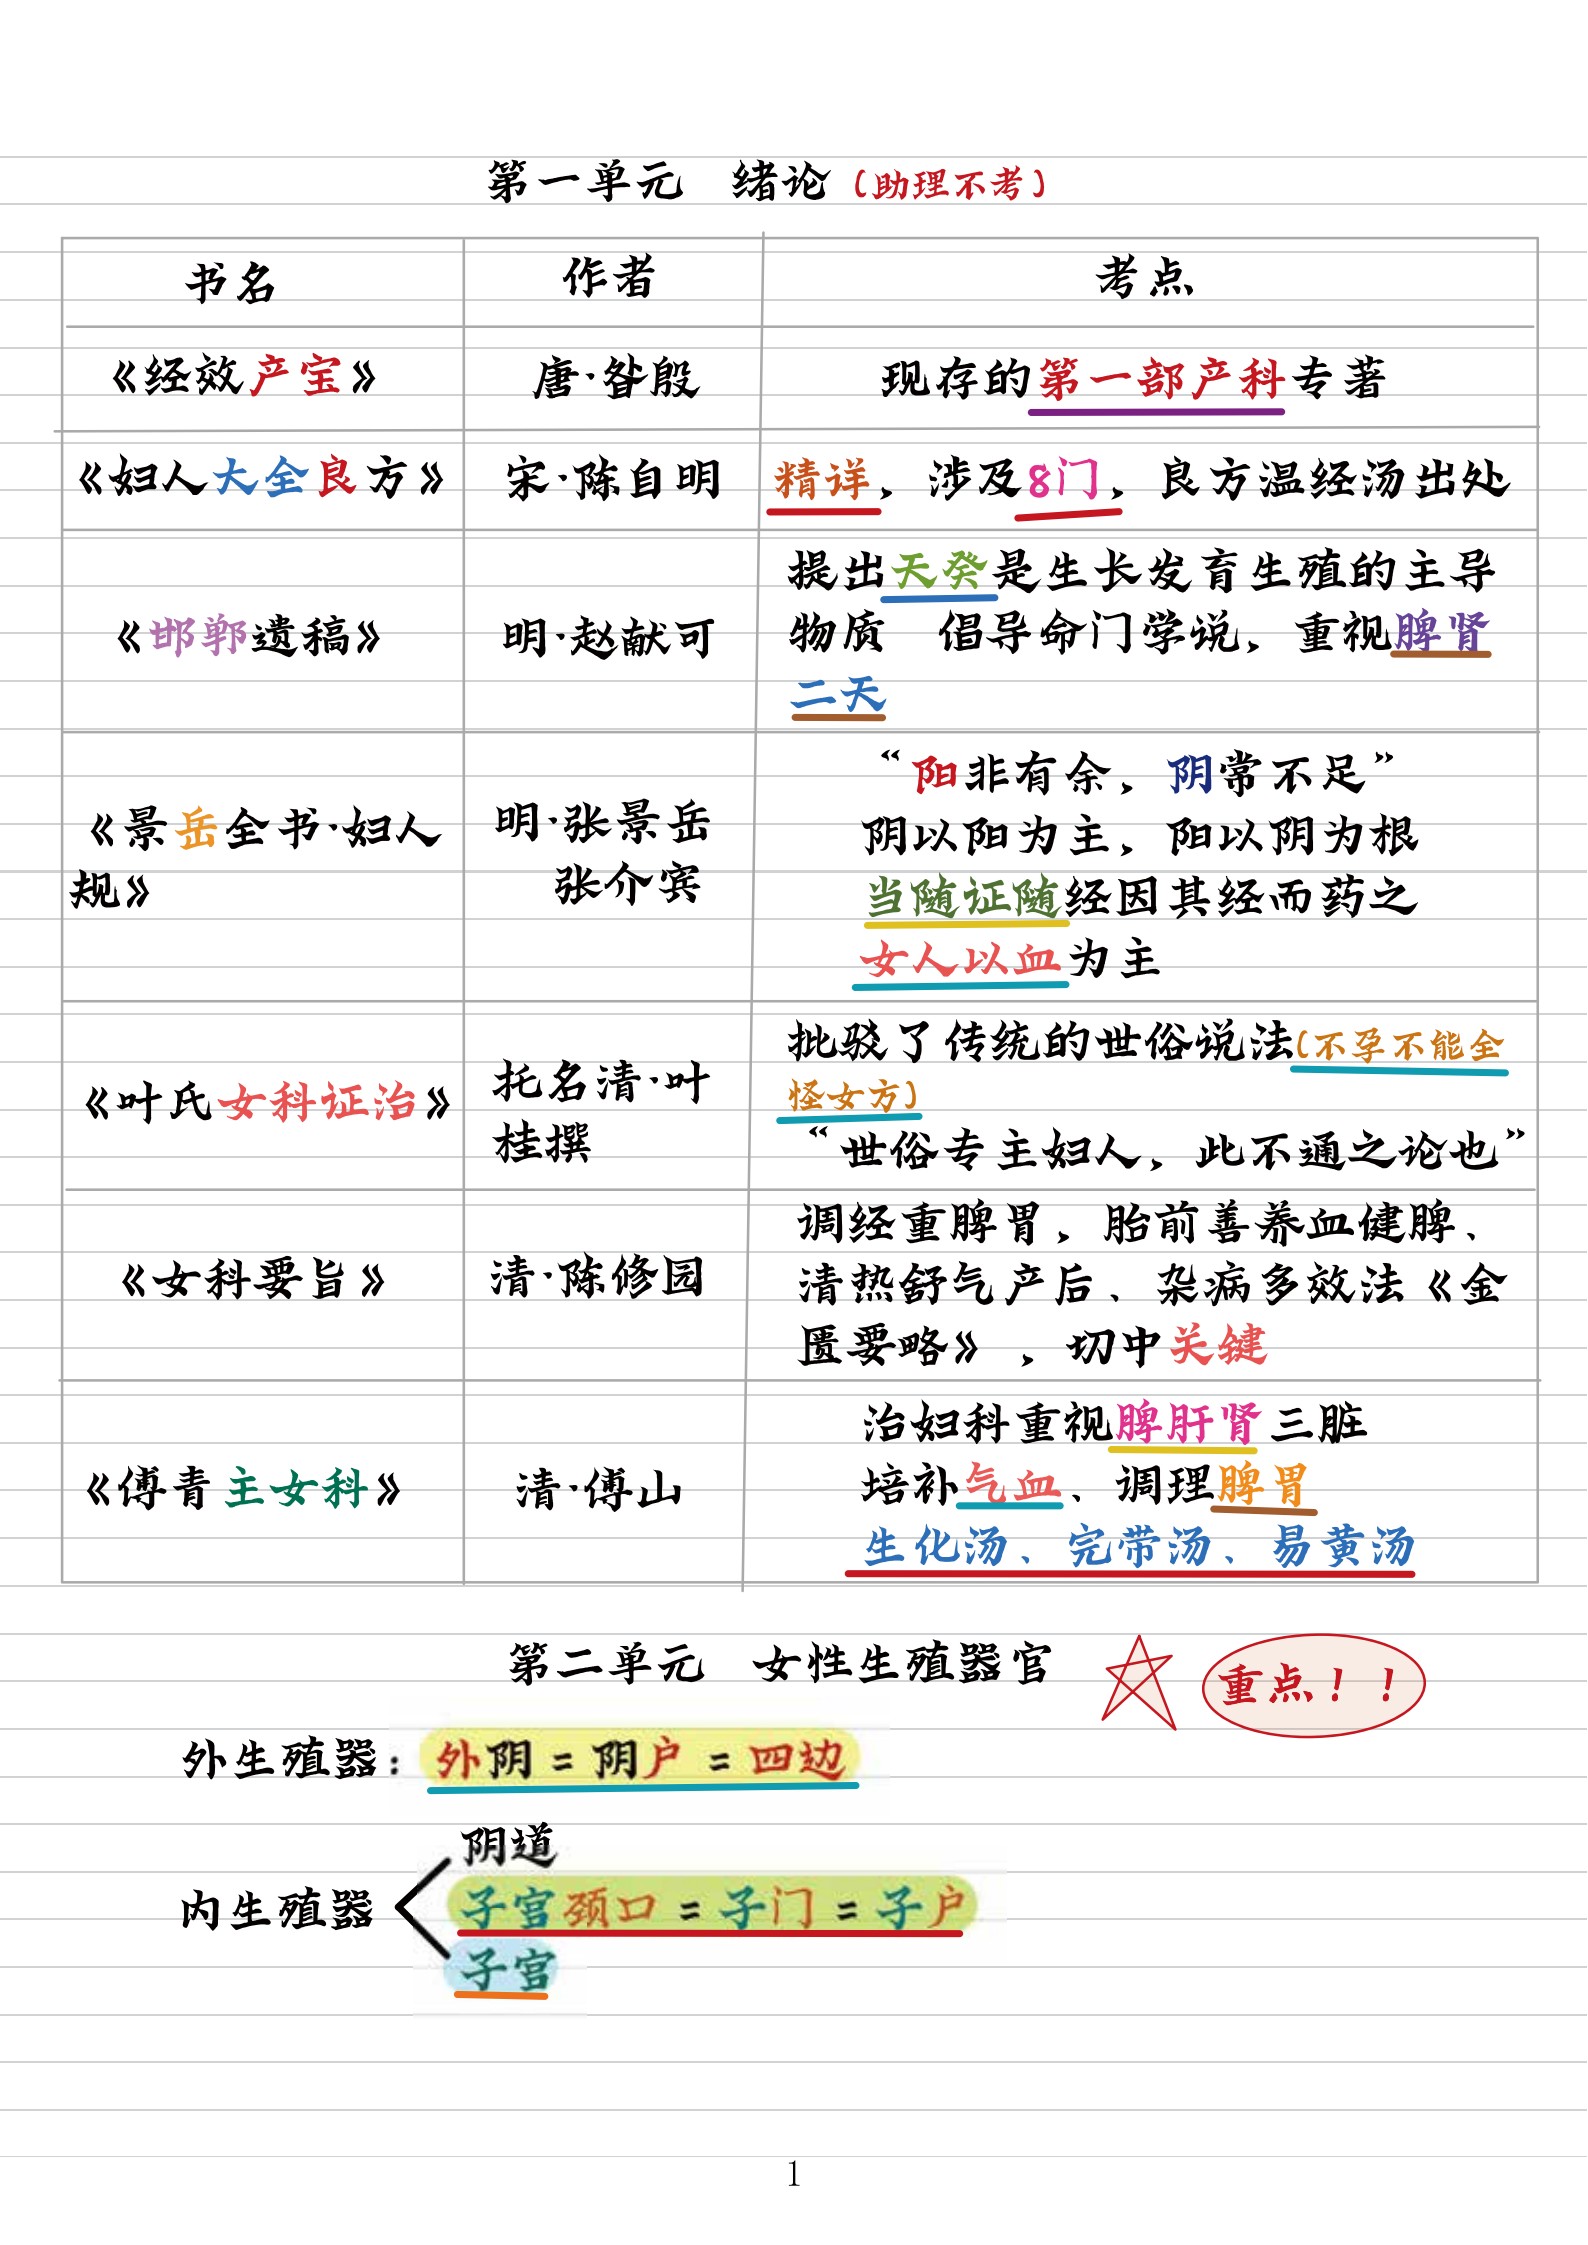 第一单元 绪论（助理不考）
书名 作者 考点
《经效产宝》 唐·昝殷 现存的第一部产科专著
《妇人大全良方》 宋·陈自明 精详，涉及8门，良方温经汤出处
《邯郸遗稿》 明·赵献可
提出天癸是生长发育生殖的主导
物质 倡导命门学说，重视脾肾
二天
《景岳全书·妇人
规》
明·张景岳
张介宾
“阳非有余，阴常不足”
阴以阳为主，阳以阴为根
当随证随经因其经而药之
女人以血为主
《叶氏女科证治》
托名清·叶
桂撰
批驳了传统的世俗说法（不孕不能全
怪女方）
“世俗专主妇人，此不通之论也”
《女科要旨》 清·陈修园
调经重脾胃，胎前善养血健脾、
清热舒气产后、杂病多效法《金
匮要略》，切中关键
《傅青主女科》 清·傅山
治妇科重视脾肝肾三脏
培补气血、调理脾胃
生化汤、完带汤、易黄汤
第二单元 女性生殖器官 重点！！
外生殖器：外阴=阴户=四边
内生殖器
阴道
子宫颈口=子门=子户
子宫
1